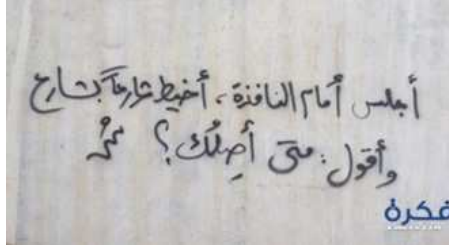 أجلس أمام النافذة، أخيط شارعاً بشارع
وأقول: متى أصِلُك؟
فكرة